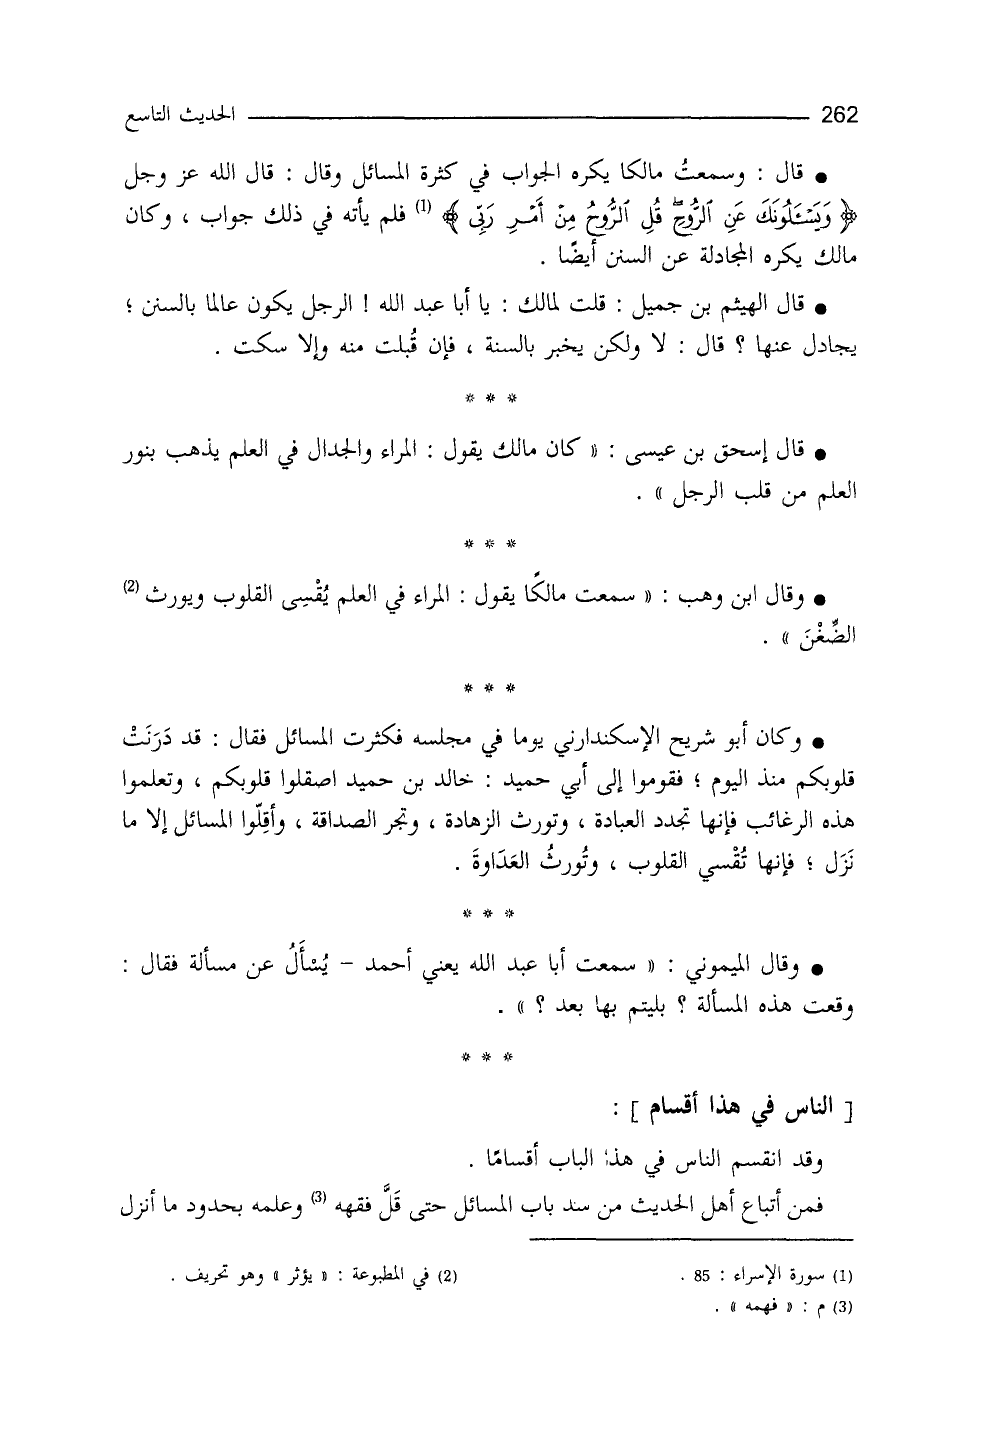 262 الحديث التاسع
● قال : وسمعتُ مالكا يكره الجواب في كثرة المسائل وقال : قال الله عز وجل
﴿ وَيَسْـَٔلُونَكَ عَنِ ٱلرُّوحِۖ قُلِ ٱلرُّوحُ مِنْ أَمْـرِ رَبِّى ﴾ (1) فلم يأته في ذلك جواب ، وكان
مالك يكره المجادلة عن السنن أيضًا .
● قال الهيثم بن جميل : قلت لمالك : يا أبا عبد الله ! الرجل يكون عالما بالسنن ؛
يجادل عنها ؟ قال : لا ولكن يخبر بالسنة ، فإن قُبلت منه وإلا سكت .
* * *
● قال إسحق بن عيسى : « كان مالك يقول : المراء والجدال في العلم يذهب بنور
العلم من قلب الرجل » .
* * *
● وقال ابن وهب : « سمعت مالكًا يقول : المراء في العلم يُقْسِى القلوب ويورث (2)
الضِّغْنَ » .
* * *
● وكان أبو شريح الإسكندارني يوما في مجلسه فكثرت المسائل فقال : قد دَرَنَتْ
قلوبكم منذ اليوم ؛ فقوموا إلى أبي حميد : خالد بن حميد اصقلوا قلوبكم ، وتعلموا
هذه الرغائب فإنها تجدد العبادة ، وتورث الزهادة ، وتجر الصداقة ، وأقِلّوا المسائل إلا ما
نَزَل ؛ فإنها تُقْسي القلوب ، وتُورثُ العَدَاوةَ .
* * *
● وقال الميموني : « سمعت أبا عبد الله يعني أحمد – يُسْأَلُ عن مسألة فقال :
وقعت هذه المسألة ؟ بليتم بها بعد ؟ » .
* * *
[ الناس في هذا أقسام ] :
وقد انقسم الناس في هذا الباب أقسامًا .
فمن أتباع أهل الحديث من سد باب المسائل حتى قَلَّ فقهه (3) وعلمه بحدود ما أنزل
(1) سورة الإسراء : 85 .
(2) في المطبوعة : « يؤثر » وهو تحريف .
(3) م : « فهمه » .